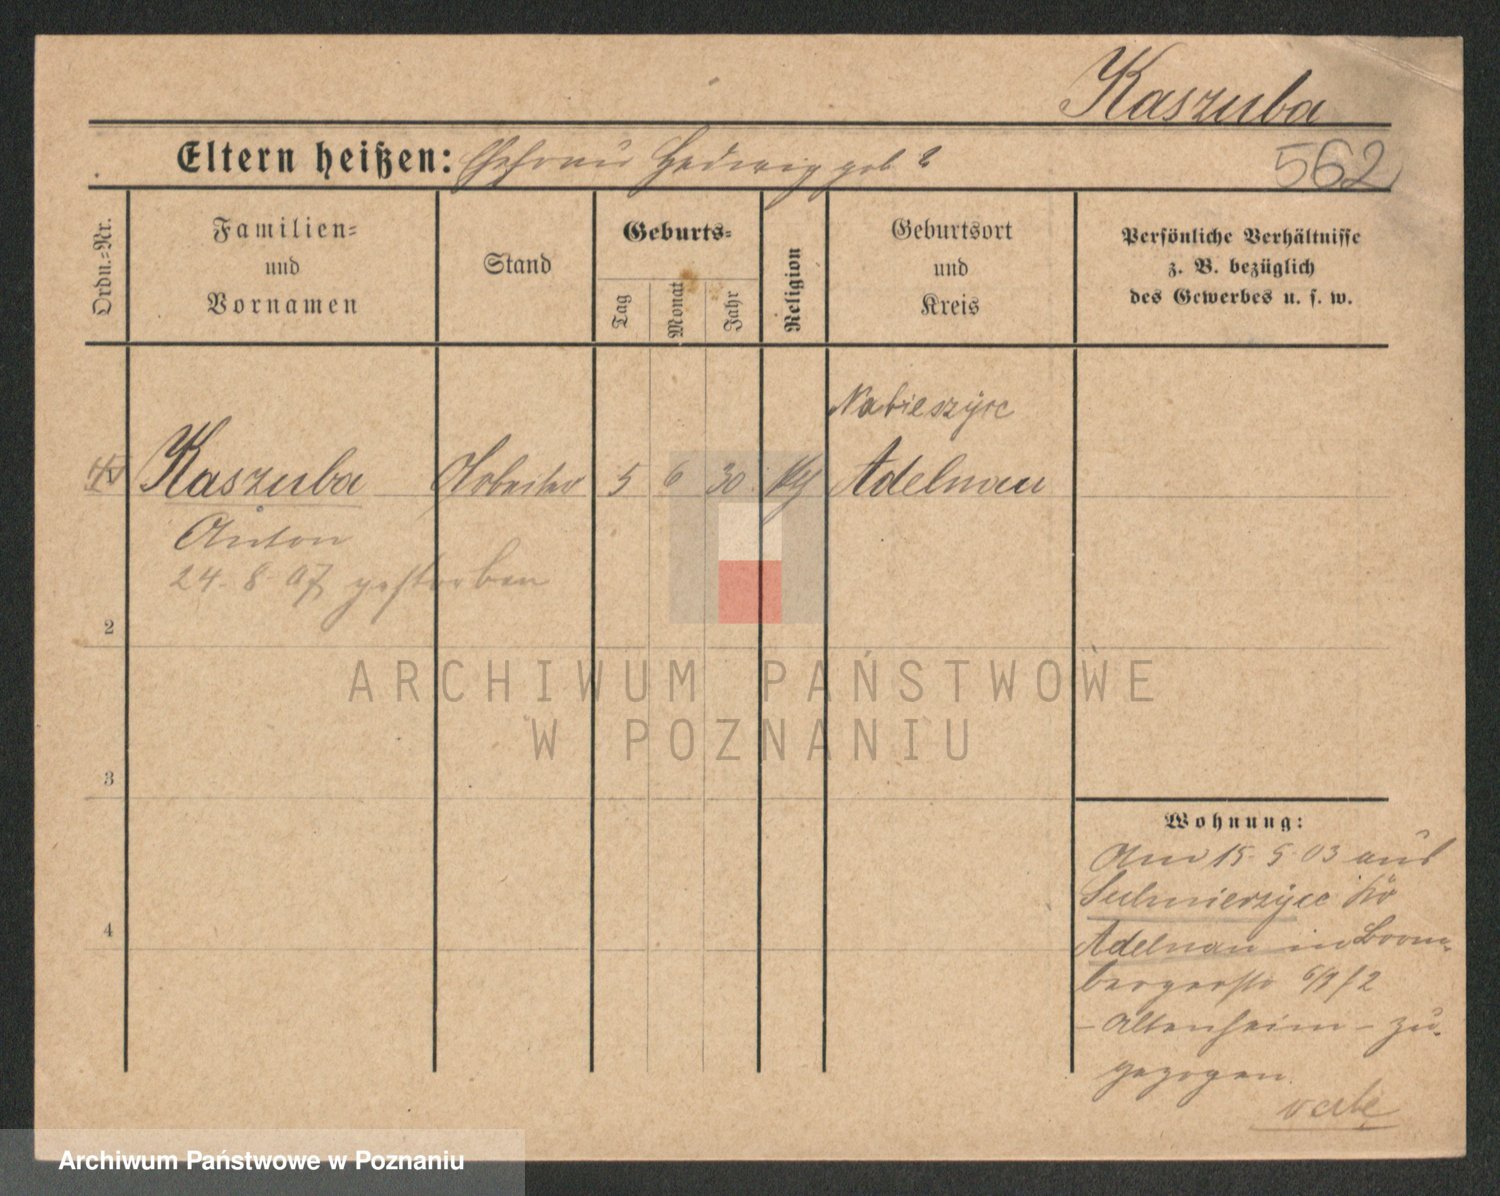 Kaszuba
Eltern heißen: Ehefrau Hedwig geb ?
562
Ordn.-Nr.
Familien-
und
Vornamen
Stand
Geburts-
Tag
Monat
Jahr
Religion
Geburtsort
und
Kreis
Persönliche Verhältnisse
z. B. bezüglich
des Gewerbes u. s. w.
Nabieszyce
Kaszuba Arbeiter 5 6 30 Adelnau
Anton
24. 8. 07 gestorben
2
3
4
ARCHIWUM PAŃSTWOWE
W POZNANIU
Wohnung:
Am 15. 5. 03 aus
Sulmierzyce Kr
Adelnau in Brom-
bergerstr 6/8 / 2
- Altenheim - zu-
gezogen.
Archiwum Państwowe w Poznaniu